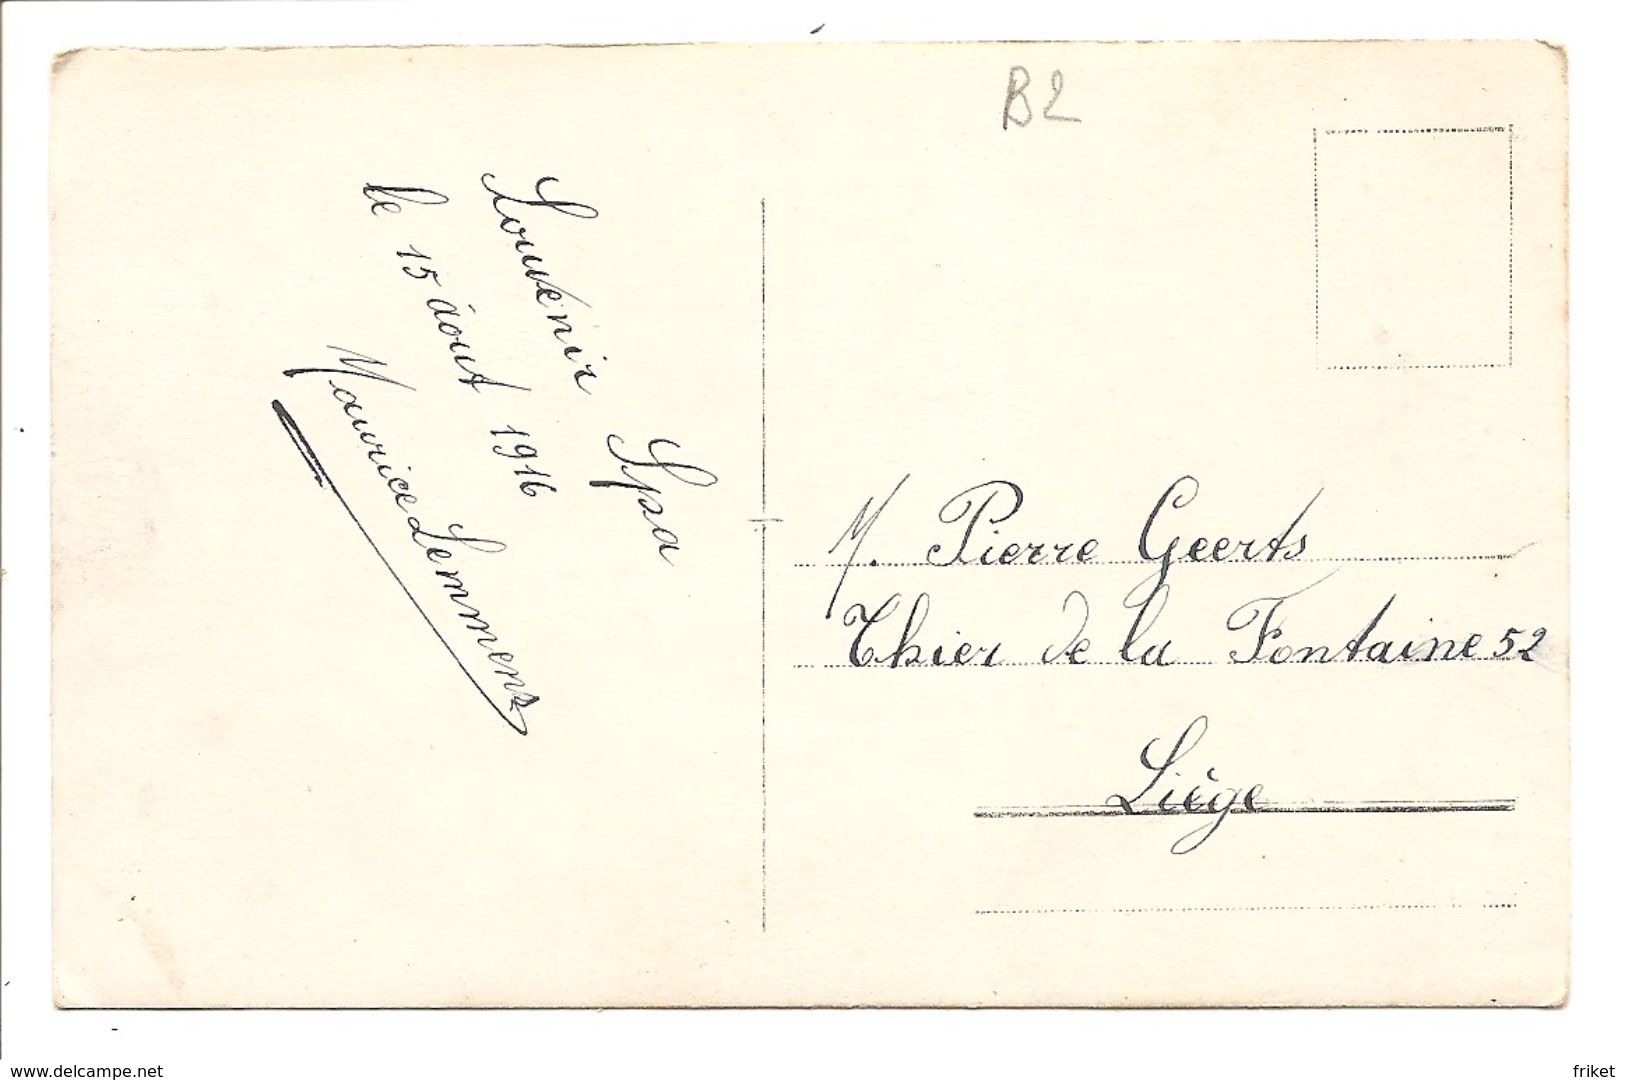 B2
Souvenir Spa
le 15 âout 1916
Maurice Lemmens
M. Pierre Geerts
Thier de la Fontaine 52
Liège
www.delcampe.net
friket